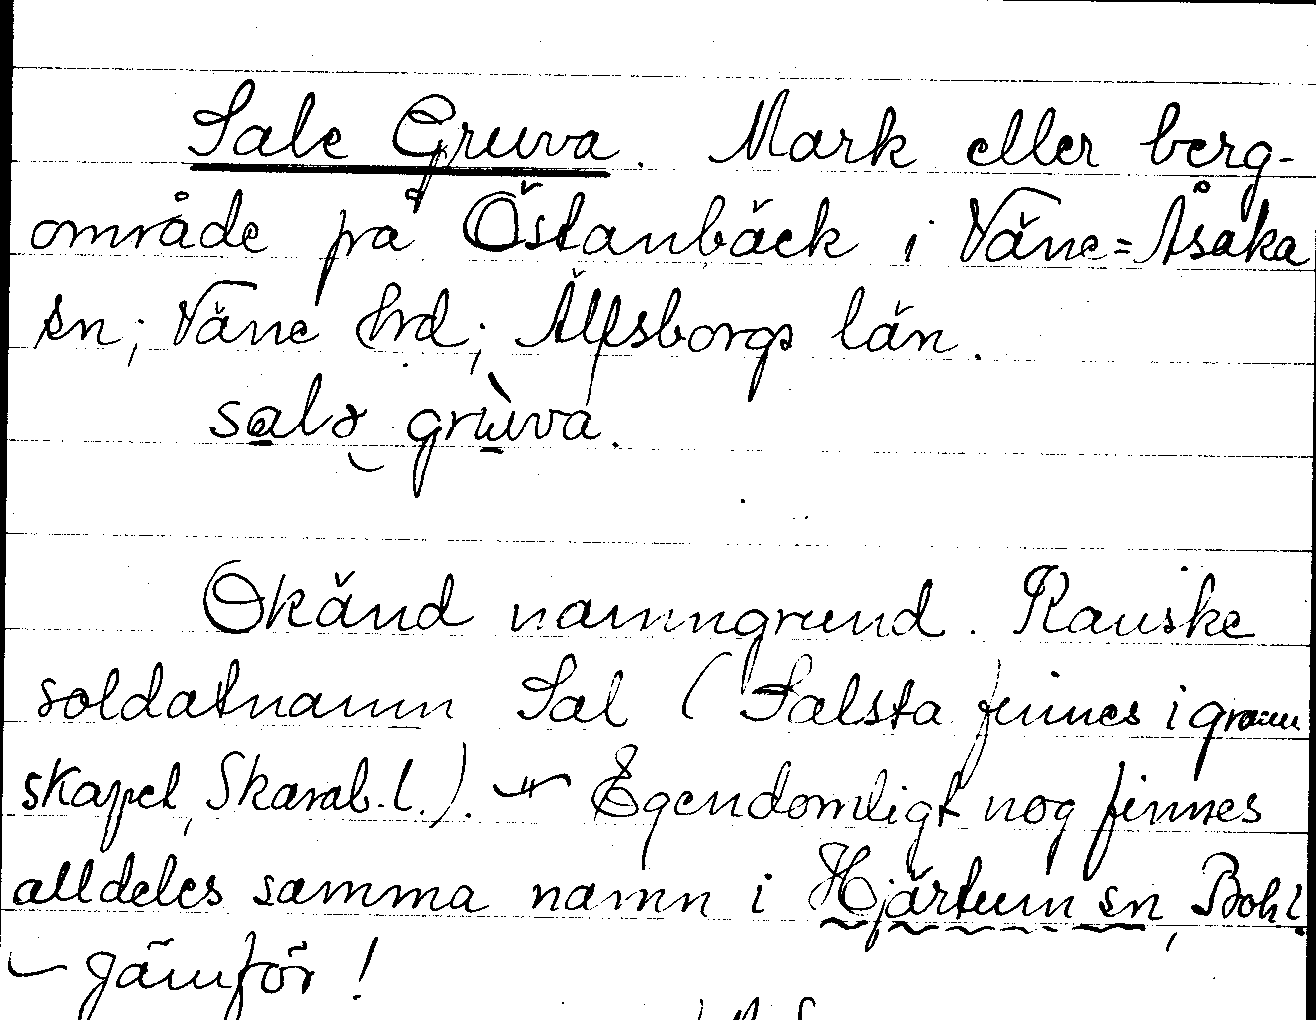 Sale Gruva. Mark eller berg-
område på Östanbäck i Väne=Åsaka
sn; Väne hrd; Älfsborgs län.
salə gruva.
Okänd namngrund. Kanske
soldatnamn Sal (Salsta finnes i grann
skapet, Skarab. l.). — Egendomligt nog finnes
alldeles samma namn i Hjärtum sn, Boh l.
— jämför!